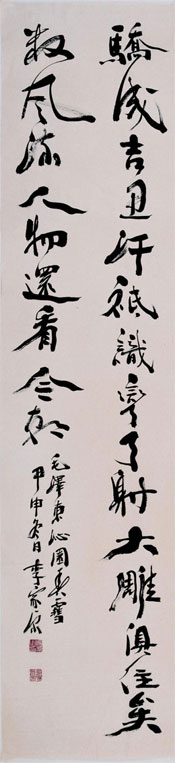 驕成吉思汗祇識彎弓射大雕俱往矣
數風流人物還看今朝
毛澤東沁園春雪
甲申冬日李家原